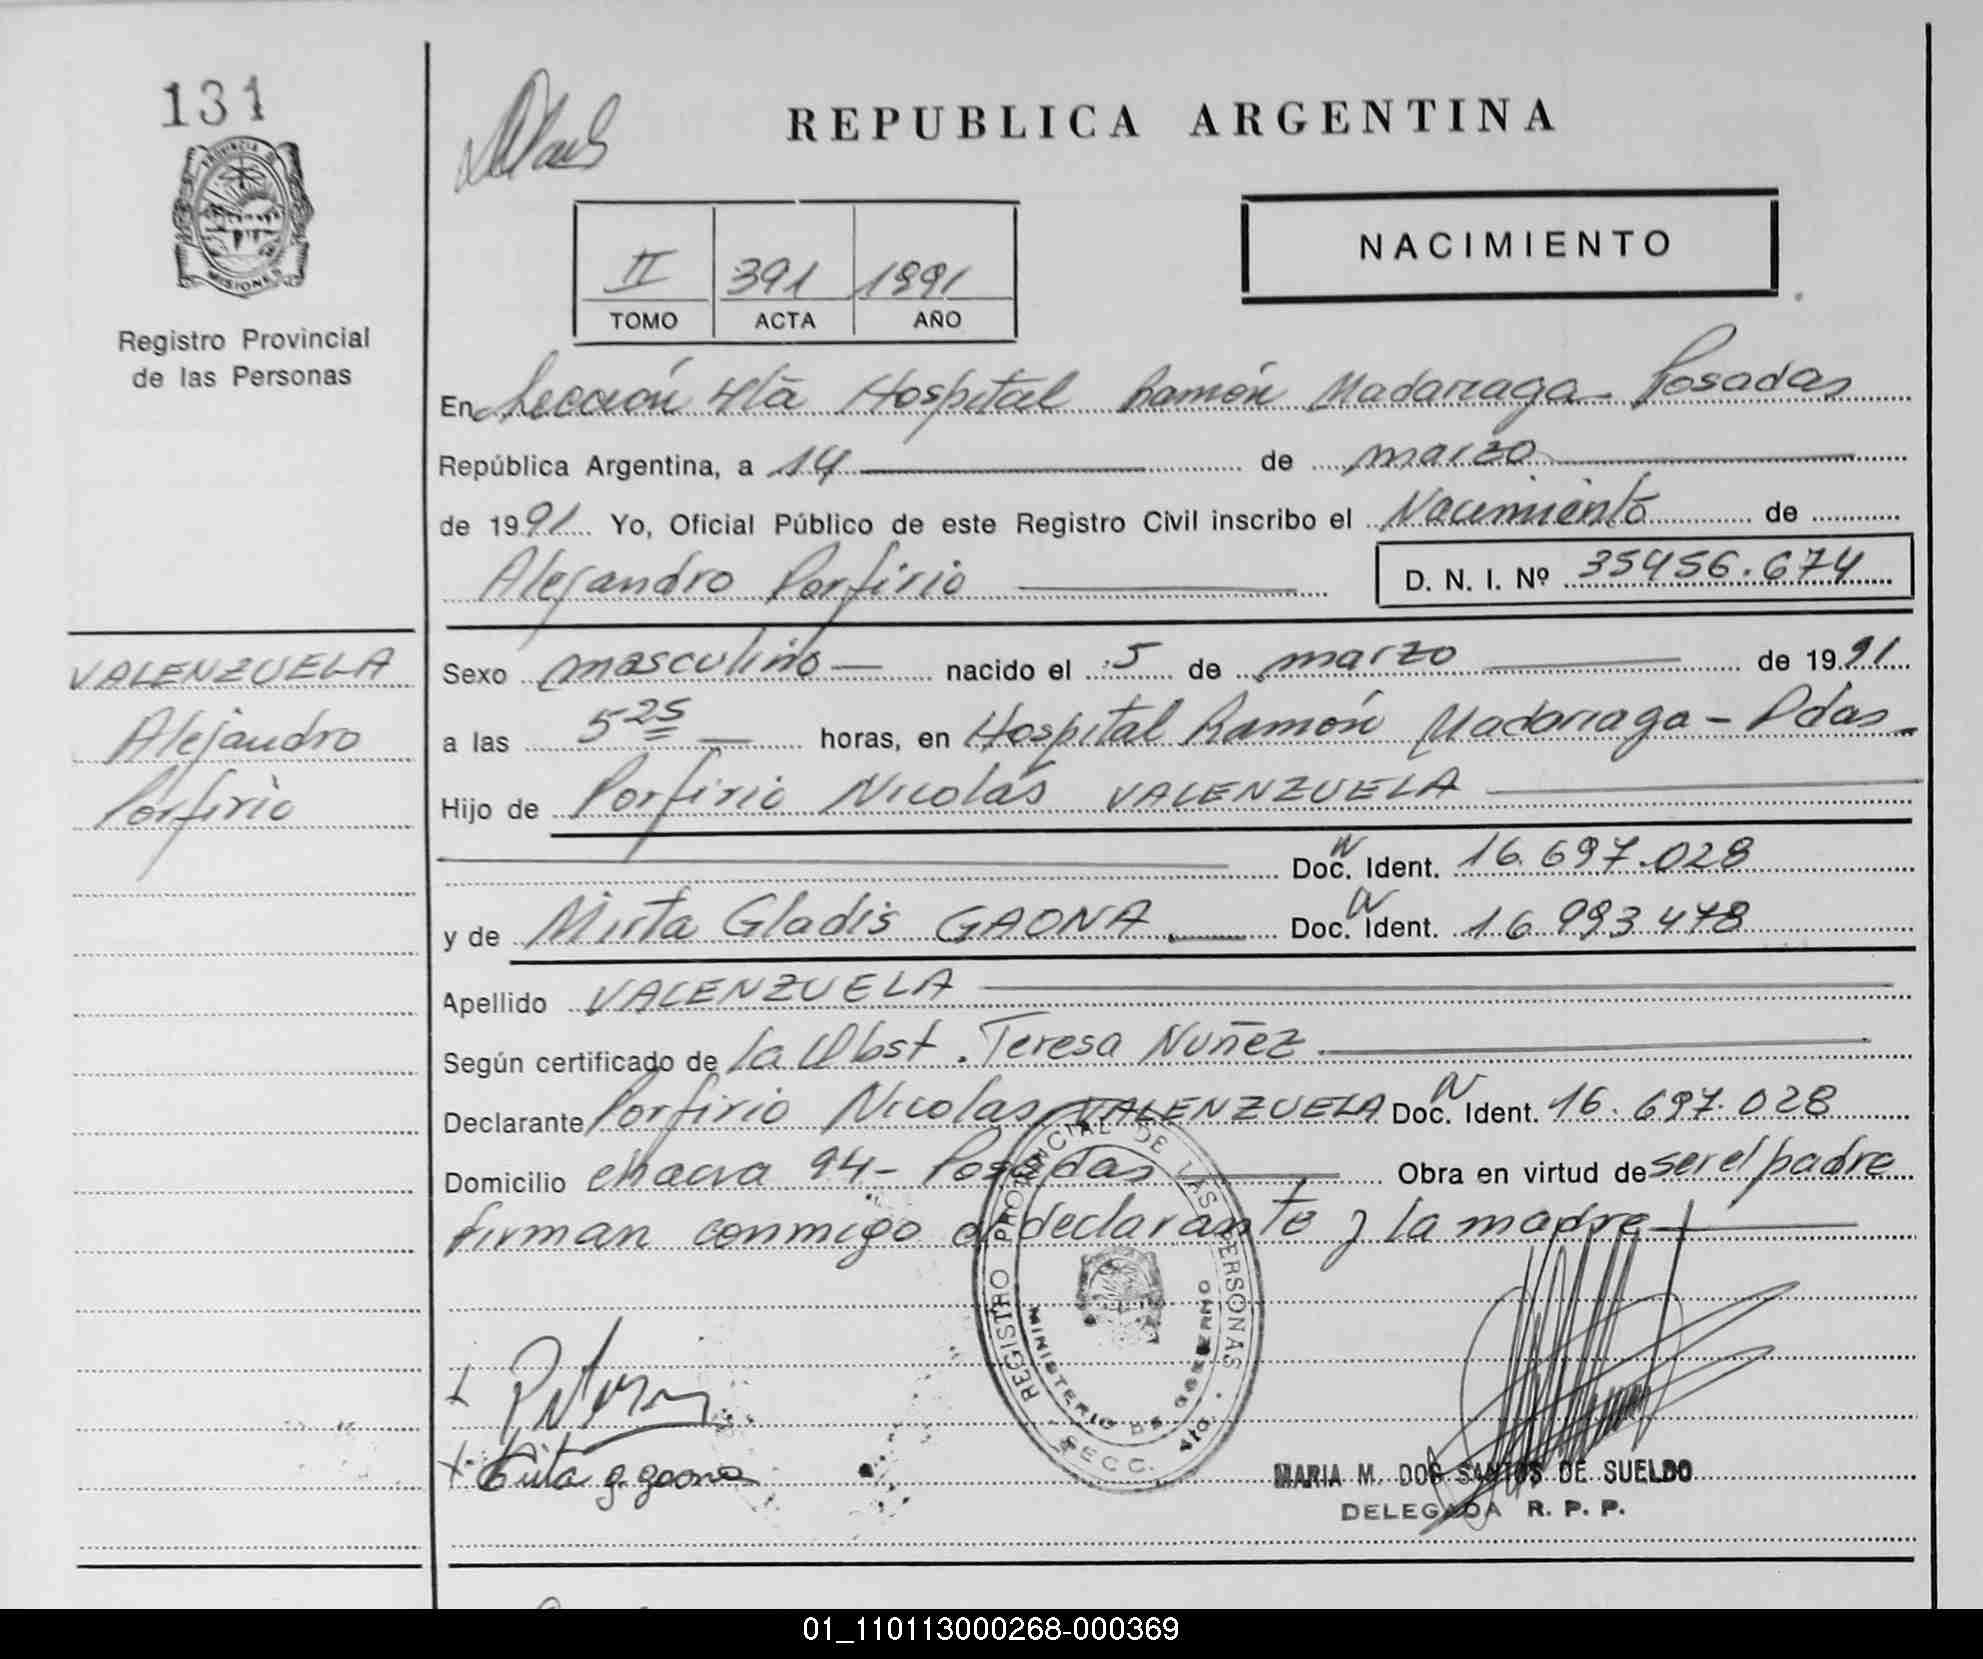 131
PROVINCIA D
MISIONES
Registro Provincial
de las Personas
VALENZUELA
Alejandro
Porfirio
REPUBLICA ARGENTINA
II 391 1991
TOMO ACTA AÑO
NACIMIENTO
En Sección 4ta Hospital Ramón Madariaga - Posadas
República Argentina, a 14 de marzo
de 1991 Yo, Oficial Público de este Registro Civil inscribo el Nacimiento de
Alejandro Porfirio D. N. I. Nº 35456.674
Sexo masculino nacido el 5 de marzo de 1991
a las 5 25 horas, en Hospital Ramón Madariaga - Pdas.
Hijo de Porfirio Nicolás VALENZUELA
Doc. Ident. 16.697.028
y de Mirta Gladis GAONA Doc. Ident. 16 993 478
Apellido VALENZUELA
Según certificado de la Obst. Teresa Nuñez
Declarante Porfirio Nicolas VALENZUELA Doc. Ident. 16.697.028
Domicilio chacra 94 - Posadas Obra en virtud de ser el padre
firman conmigo el declarante y la madre
REGISTRO PROVINCIAL DE LAS PERSONAS
MINISTERIO DE GOBIERNO
SECC. 4ta
g. gaona
MARIA M. DOS SANTOS DE SUELDO
DELEGADA R. P. P.
01_110113000268-000369